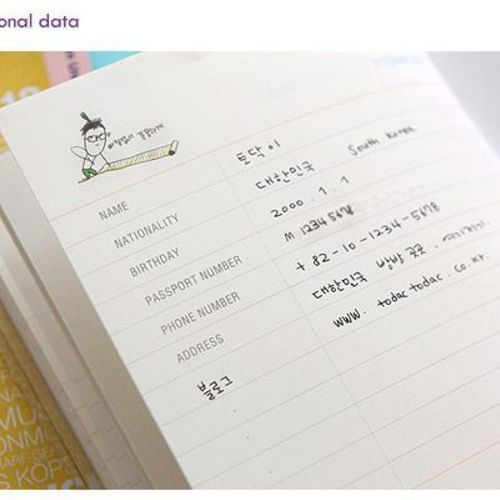 onal data
NAME 토닥이
NATIONALITY 대한민국 South Korea
BIRTHDAY 2000 . 1 . 1
PASSPORT NUMBER M 1234 5678
PHONE NUMBER + 82 - 10 - 1234 - 5678
ADDRESS 대한민국 방방곡곡
블로그 www. todactodac. co. kr.